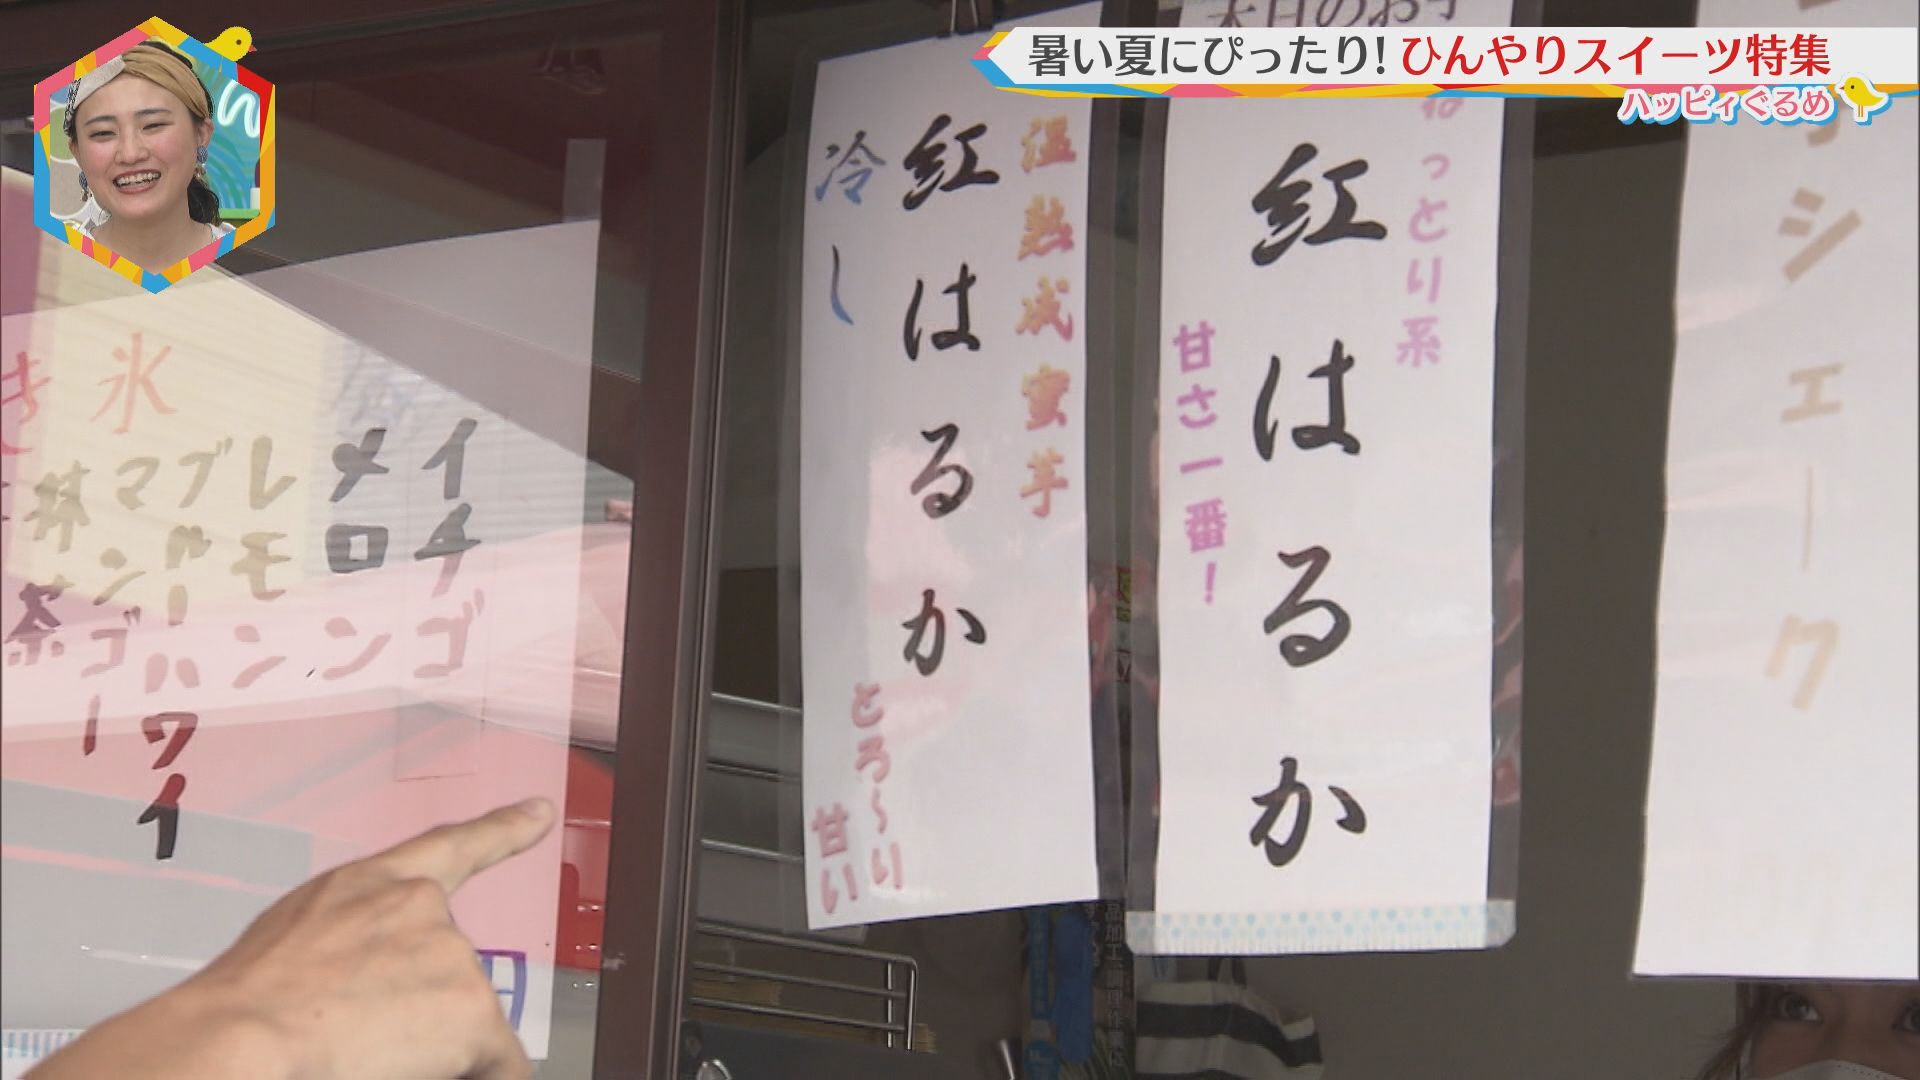 暑い夏にぴったり!ひんやりスイーツ特集
ハッピィぐるめ
ん
シェーク
ねっとり系
紅はるか
甘さ一番!
温熱成蜜芋
紅はるか
冷し
とろ～り
甘い
氷
イチゴ
メロン
レモン
ブルーハワイ
マンゴー
抹茶
品加工調理作業